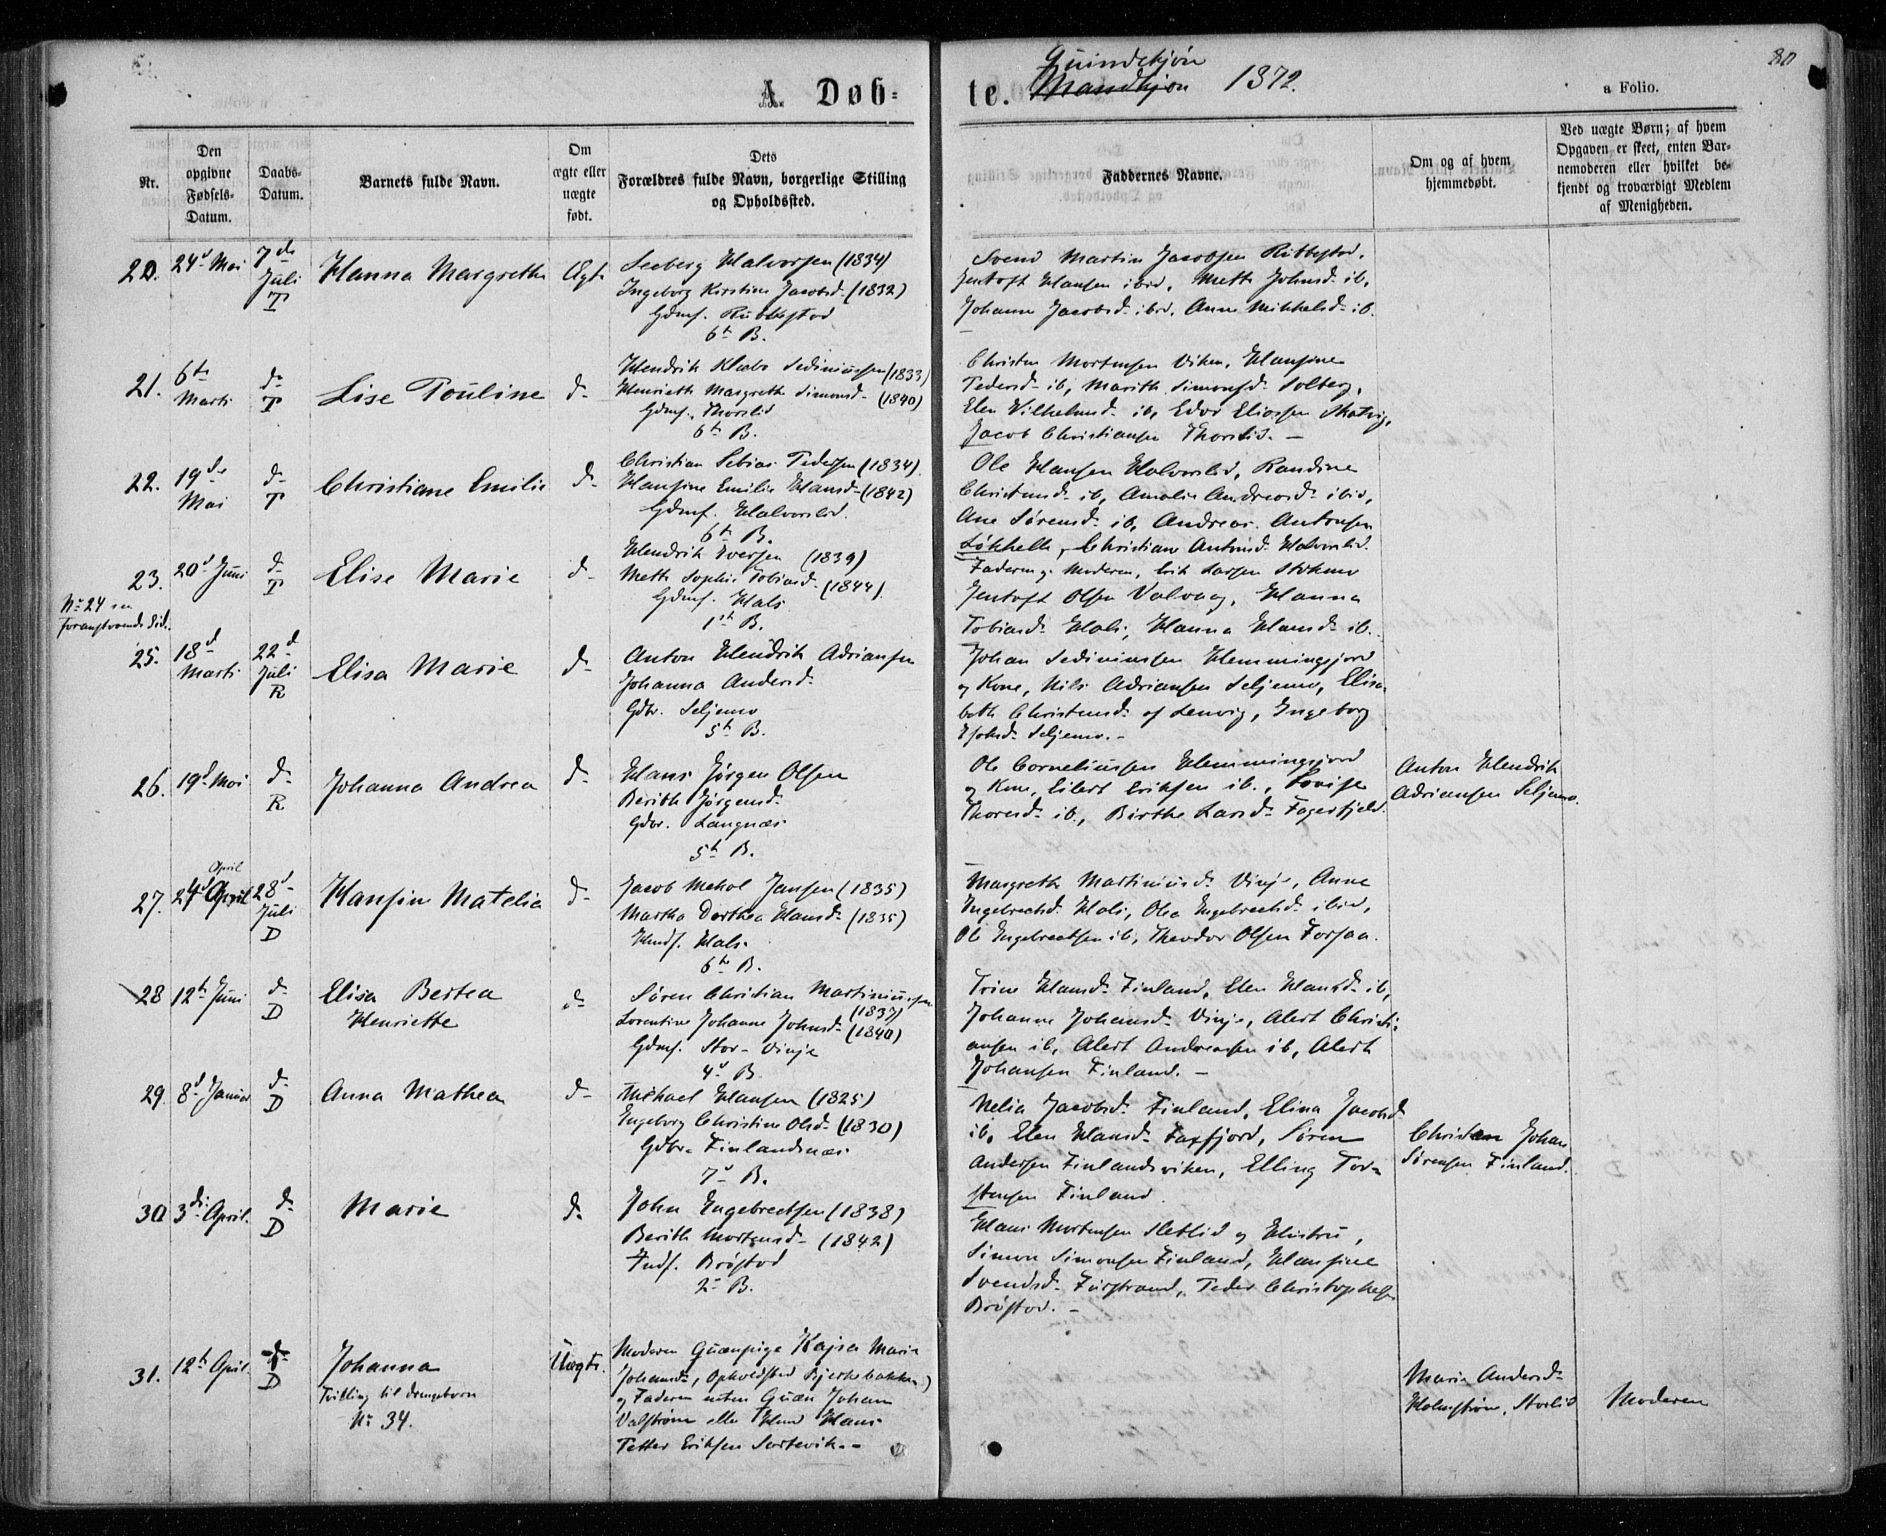 80
A. Døb-
te. Quindekjøn
Mandkjøn 1872.
a Folio.
Nr.
Den opgivne Fødsels-Datum.
Daabs-Datum.
Barnets fulde Navn.
Om ægte eller uægte født.
Dets Forældres fulde Navn, borgerlige Stilling og Opholdssted.
Faddernes Navne.
Om og af hvem hjemmedøbt.
Ved uægte Børn; af hvem Opgaven er skeet, enten Barnemoderen eller hvilket bekjendt og troværdigt Medlem af Menigheden.
20. 24d Mai 7de Juli T Hanna Margrethe Ægte
Seeberg Halvorsen (1834)
Ingeborg Kirstine Jacobsd. (1832)
Gdmf. Rubbestad
6te B.
Svend Martin Jacobsen
Jentoft Hansen ibid, Mette Johnsd. ib,
Johanne Jacobsd. ibid, Anne Mikkelsd. ib.
21. 6te Marti d- T Lise Pouline d-
Hendrik Klæbo Sediniussen (1833)
Henriette Margrethe Simonsd. (1840)
Gdmf. Thorslid
6te B.
Christen Mortensen Viken, Hansine
Pedersd. ib, Marith Simonsd. Solberg,
Elen Vilhelmsd. ib, Edor Eliassen Skatvig,
Jacob Christiansen Thorslid. -
22. 19de Mai d- T Christiane Emilie d-
Christian Tobias Pedersen (1834).
Hansine Emilie Hansd. (1842)
Gdmf. Halvorslid.
6te B.
Ole Hansen Halvorslid, Randine
Christensd. ib, Amalie Andreasd. ibid,
Ane Sørensd. ib, Andreas Antonsen
Løkhelle, Christiane Antonsd. Halvorslid.
23. 20d Juni d- T Elise Marie d-
Hendrik Iversen (1839)
Mette Sophie Tobiasd. (1844).
Gdmf. Hals
1ste B.
Faderen og Moderen, Erik Larsen Stokmo
Jentoft Olsen Valvaag, Hanna
Tobiasd. Hals, Hanna Hansd. ib.
No 24 se
foranstaaende Side.
25. 18d Marti 22d Juli R Elisa Marie d-
Anton Hendrik Adriansen
Johanna Andersd.
Gdbr. Seljemo
5te B.
Johan Sediniussen Hemmingsjord
og Kone, Nils Adriansen Seljemo, Elisa-
beth Christensd. af Lenvig, Ingeborg
Seljemo. -
26. 19d Mai d- R Johanna Andrea d-
Hans Jørgen Olsen
Berith Jørgensd.
Gdbr. Langnæs
5te B.
Ole Corneliussen Hemmingsjord
og Kone, Eilert Eriksen ib., Lovise
Thoresd. ib., Birthe Larsd. Fagerfjeld.
Anton Hendrik
Adriansen Seljemo.
27. 24d April April 28d Juli D Hansine Matelia d-
Jacob Mekal Jansen (1835)
Martha Dorthea Hansd. (1835)
Hmdf. Hals
6te B.
Margrethe Martiniusd. Vinje, Anne
Engebrechtsd. Hals, Olia Engebrechtsd. ibid,
Ole Engebrechtsen ib, Theodor Olsen Forsaa.
28 12te Juni d- D Elisa Bertea Henriette d-
Søren Christian Martiniussen
(1837)
Lorentine Johanne Johnsd. (1840)
Gdmf. Stor-Vinje
4d B.
Trine Hansd. Finland, Elen Hansd. ib,
Johanne Johansd. Vinje, Alert Christi-
ansen ib, Alert Andreasen ib, Alert
Johansen Finland. -
29. 8d Januar d- D Anna Mathea d-
Michael Hansen (1825)
Ingeborg Christine Olsd. (1830)
Gdbr. Finlandsnæs
7d B.
Nelia Jacobsd. Finland, Elina Jacobsd.
ib, Elen Hansd. Faxfjord, Søren
Andersen Finlandsviken, Elling Tor-
stensen Finland.
Christen Johan
Sørensen Finland.
30 3die April. d- D Marie d-
John Engebrechtsen (1838)
Berith Mortensd. (1842)
Indf. Brøstad
2- B.
Hans Mortensen Sletlid og Hustru,
Simon Simonsen Finland, Hansine
Svendsd. Furstrand, Peder Christophers.
Brøstad. -
31. 12te April. d- D Johanna
Tvilling til drengebarn
No 34.
Uægte.
Moderen Quænpige Kajsa Marie
Johansd., Opholdsted Bjerkebakken)
og Faderen enten Quæn Johan
Valstrøm eller Hans
Petter Eriksen Sortevik. -
Marie Andersd.
Holmstrøm, Storlid
Moderen